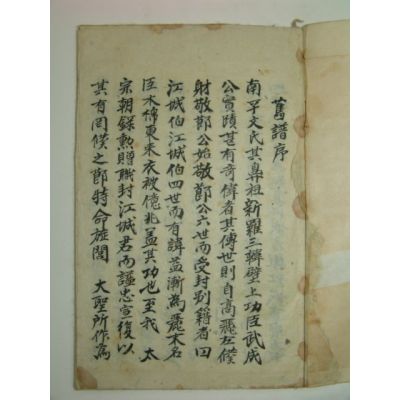 舊譜序
南平文氏其鼻祖新羅三韓壁上功臣武成
公實蹟甚有奇偉者其傳世則自高麗左僕
射敬節公始敬節公六世而受封別籍者曰
江城伯江城伯四世而有諱益漸爲麗末名
臣木棉東来衣被億兆盖其功也至我 太
宗朝錄勲贈職封江城君而諡忠宣復以
其有罔僕之節特命旌閭 大聖所作爲